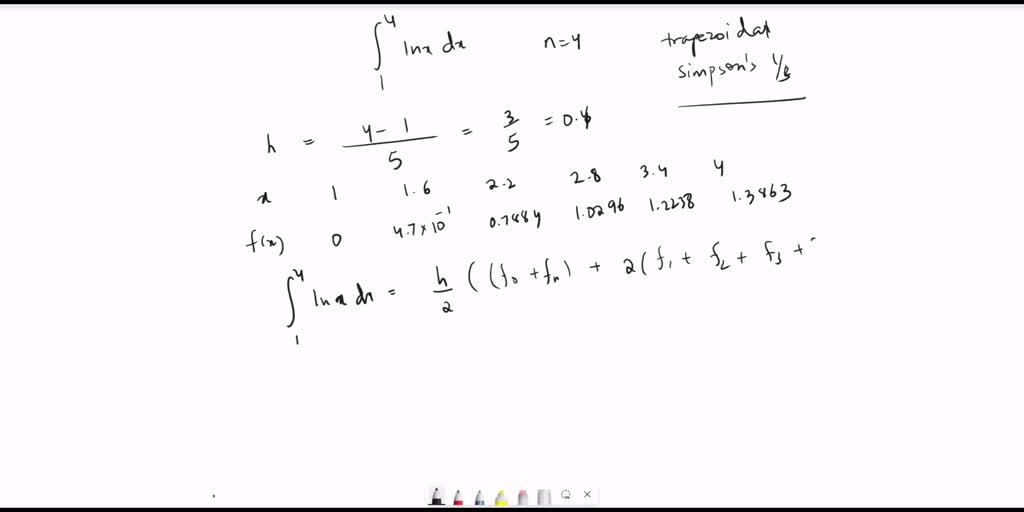 ∫₁⁴ lnx dx n=4 trapezoidal
simpson's 1/3
h = (4-1)/5 = 3/5 = 0.6
x 1 1.6 2.2 2.8 3.4 4
f(x) 0 4.7×10⁻¹ 0.7884 1.0296 1.2238 1.3863
∫₁⁴ lnx dx = h/2 ((f₀ + fₙ) + 2(f₁ + f₂ + f₃ +